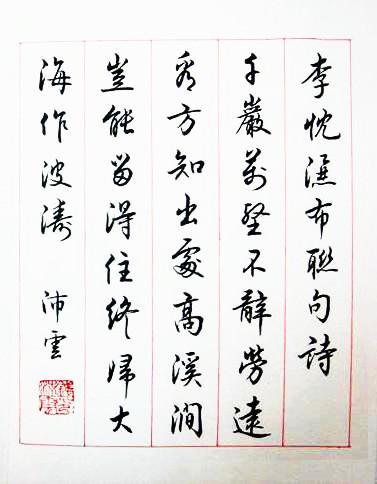 李忱瀑布聯句詩
千巖萬壑不辭勞遠
看方知出處高溪澗
豈能留得住終歸大
海作波濤 沛雲